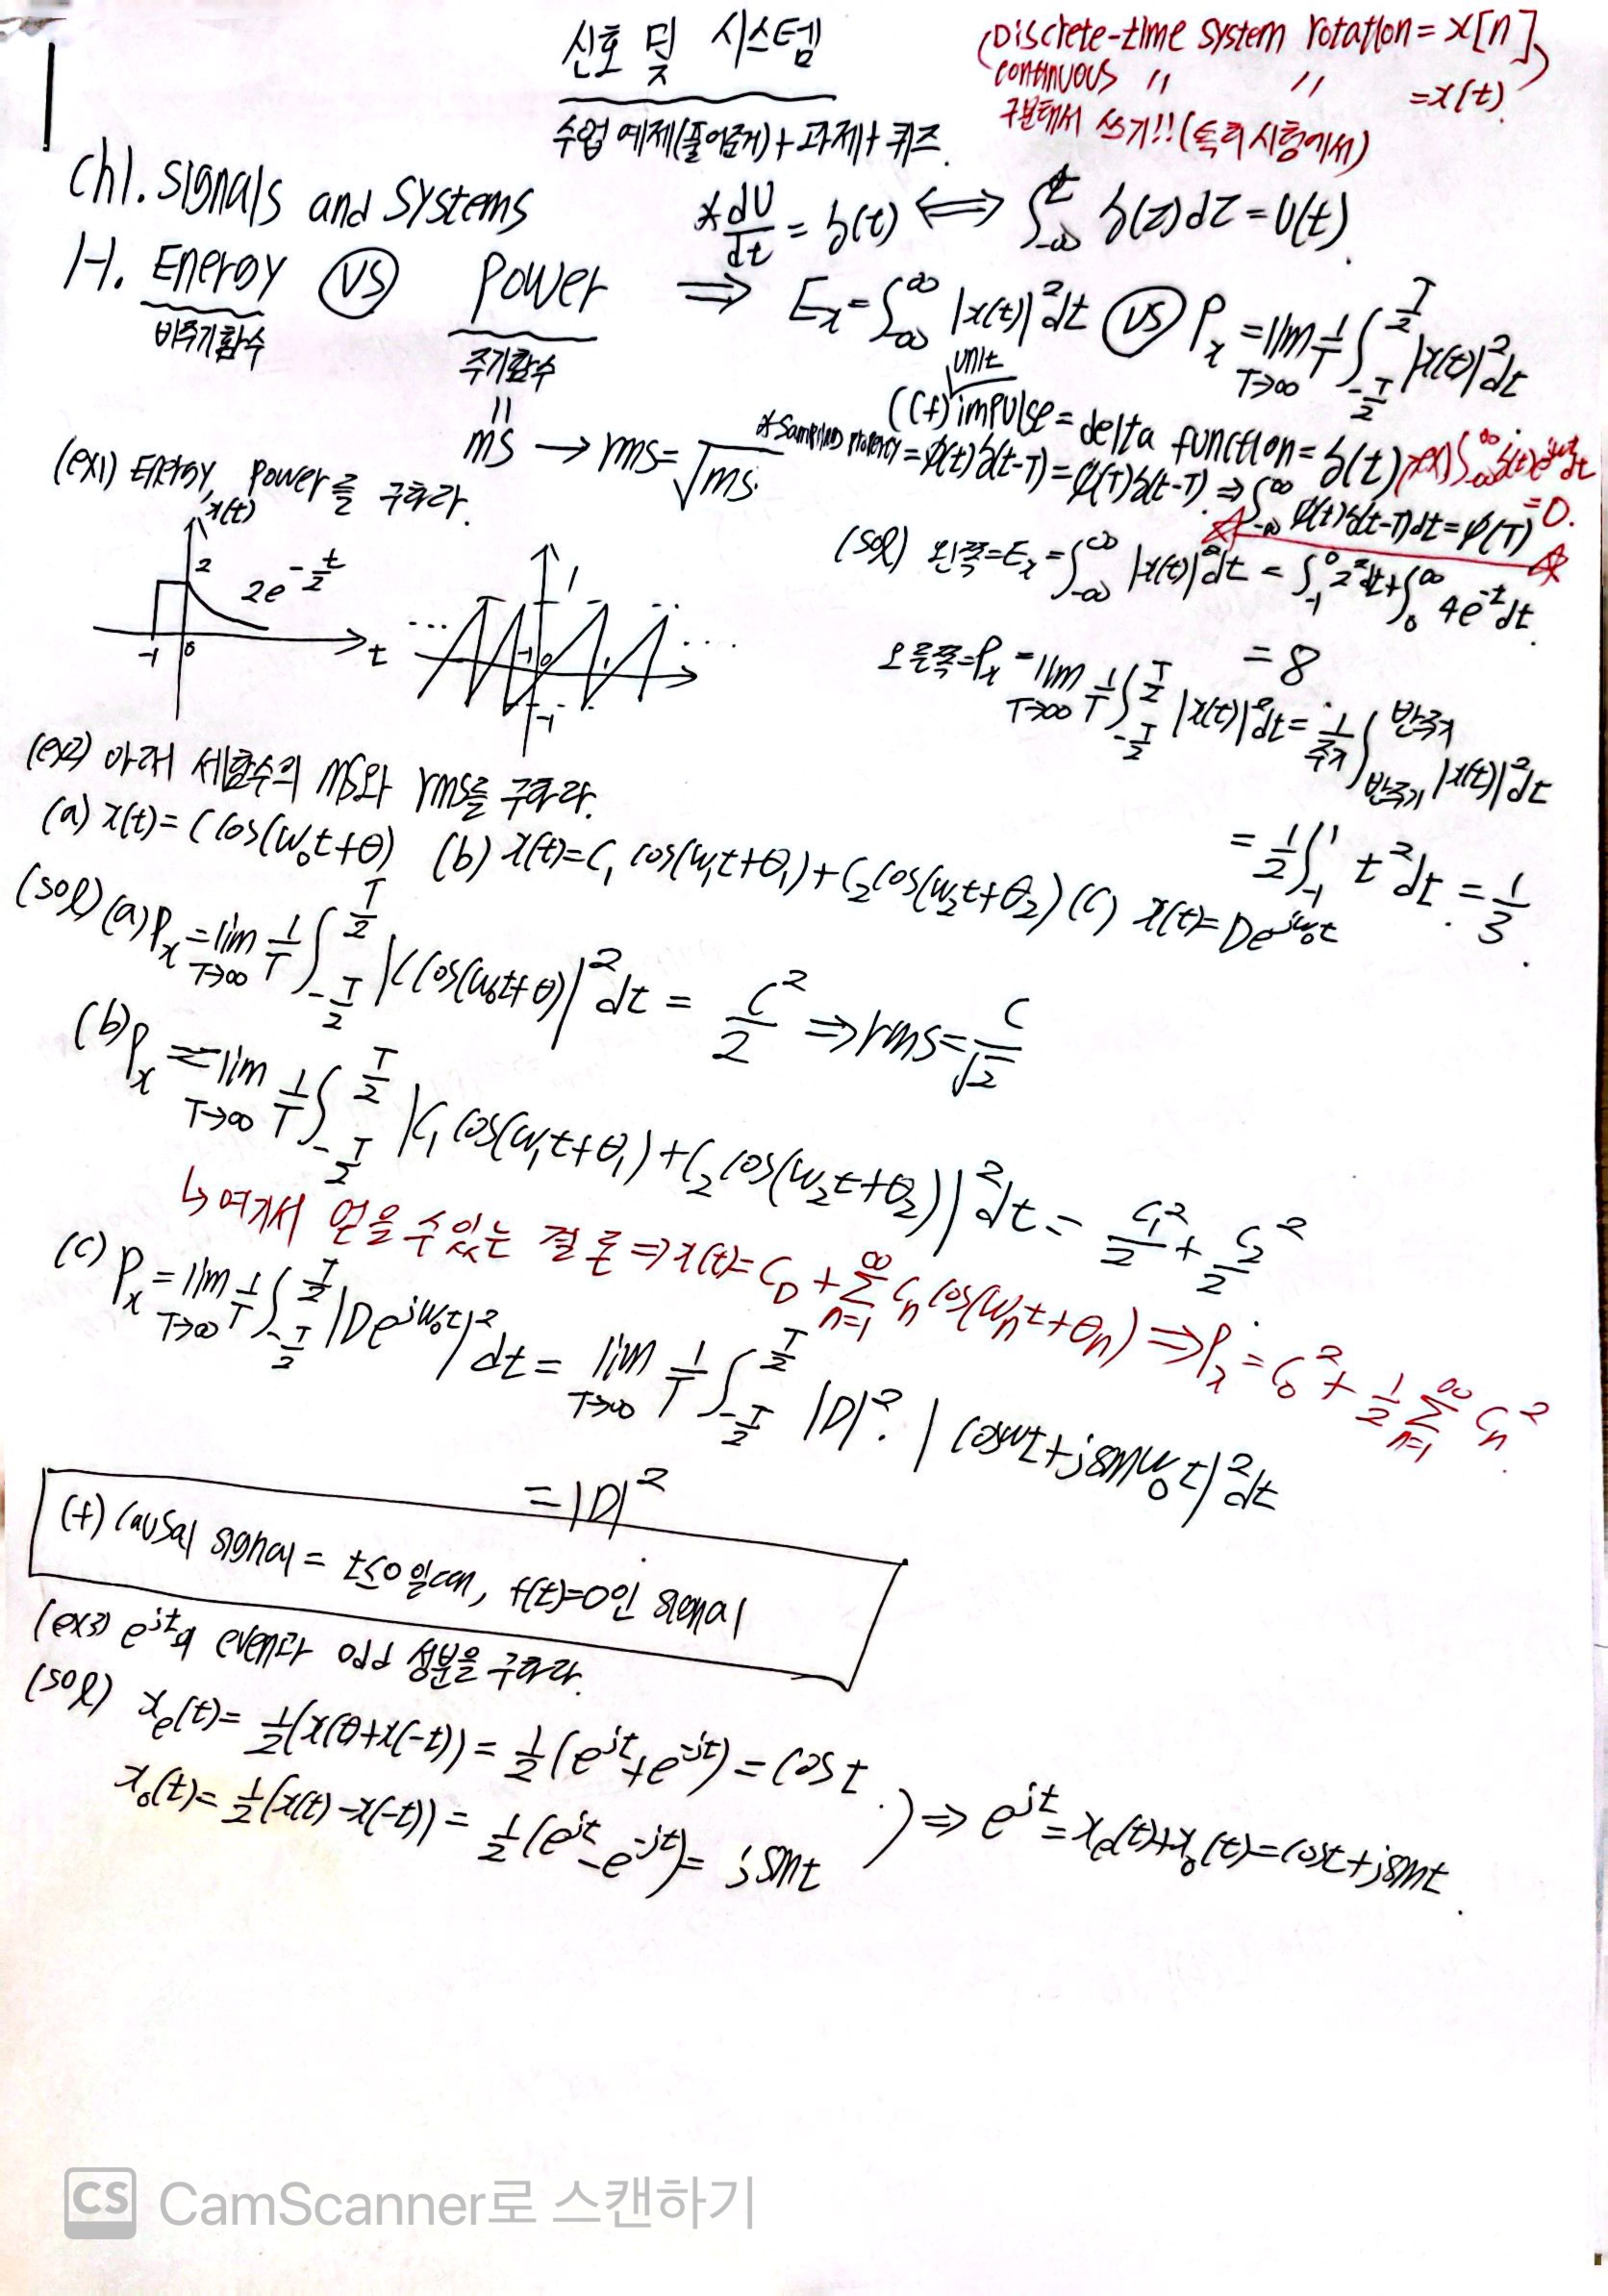 신호 및 시스템
수업 예제(풀어준거)+과제+퀴즈.
(Discrete-time system rotation = x[n]
continuous 〃 〃 = x(t))
구분해서 쓰기!! (특히 시험에서)
ch1. signals and systems
* dU/dt = δ(t) ⟺ ∫_{-∞}^{t} δ(τ)dτ = U(t).
1-1. Energy vs Power ⇒ E_x = ∫_{-∞}^{∞} |x(t)|² dt vs P_x = lim_{T→∞} 1/T ∫_{-T/2}^{T/2} |x(t)|² dt
비주기함수
주기함수
=
ms → rms = √ms.
(cf) unit impulse = delta function = δ(t)
= φ(t)δ(t-T) = φ(T)δ(t-T). ⇒ ∫_{-∞}^{∞} φ(t)δ(t-T)dt = φ(T)
= 0.
(ex1) Energy, power를 구하라.
x(t)
2
2e^{-t/2}
-1 0 t
1
-1 0 1
-1
(sol) 왼쪽 = E_x = ∫_{-∞}^{∞} |x(t)|² dt = ∫_{-1}^{0} 2² dt + ∫_{0}^{∞} 4e^{-t} dt.
= 8
오른쪽 = P_x = lim_{T→∞} 1/T ∫_{-T/2}^{T/2} |x(t)|² dt = 1/주기 ∫_{반주기}^{반주기} |x(t)|² dt
= 1/2 ∫_{-1}^{1} t² dt. = 1/3.
(ex2) 아래 세함수의 ms와 rms를 구하라.
(a) x(t) = C cos(w₀t+θ) (b) x(t) = C₁ cos(w₁t+θ₁) + C₂ cos(w₂t+θ₂) (c) x(t) = De^{jw₀t}
(sol) (a) P_x = lim_{T→∞} 1/T ∫_{-T/2}^{T/2} |C cos(w₀t+θ)|² dt = C²/2 ⇒ rms = C/√2
(b) P_x = lim_{T→∞} 1/T ∫_{-T/2}^{T/2} |C₁ cos(w₁t+θ₁) + C₂ cos(w₂t+θ₂)|² dt = C₁²/2 + C₂²/2
↳ 여기서 얻을 수 있는 결론 ⇒ x(t) = C₀ + Σ_{n=1}^{∞} Cₙ cos(wₙt+θₙ) ⇒ P_x = C₀² + 1/2 Σ_{n=1}^{∞} Cₙ².
(c) P_x = lim_{T→∞} 1/T ∫_{-T/2}^{T/2} |De^{jw₀t}|² dt = lim_{T→∞} 1/T ∫_{-T/2}^{T/2} |D|²·|coswt+jsinw₀t|² dt
= |D|²
(f) causal signal = t≤0 일때, f(t)=0인 signal
(ex3) e^{jt}의 even과 odd 성분을 구하라.
(sol) x_e(t) = 1/2(x(t)+x(-t)) = 1/2(e^{jt}+e^{-jt}) = cos t
x_o(t) = 1/2(x(t)-x(-t)) = 1/2(e^{jt}-e^{-jt}) = jsint
) ⇒ e^{jt} = x_e(t)+x_o(t) = cost+jsint.
CS CamScanner로 스캔하기